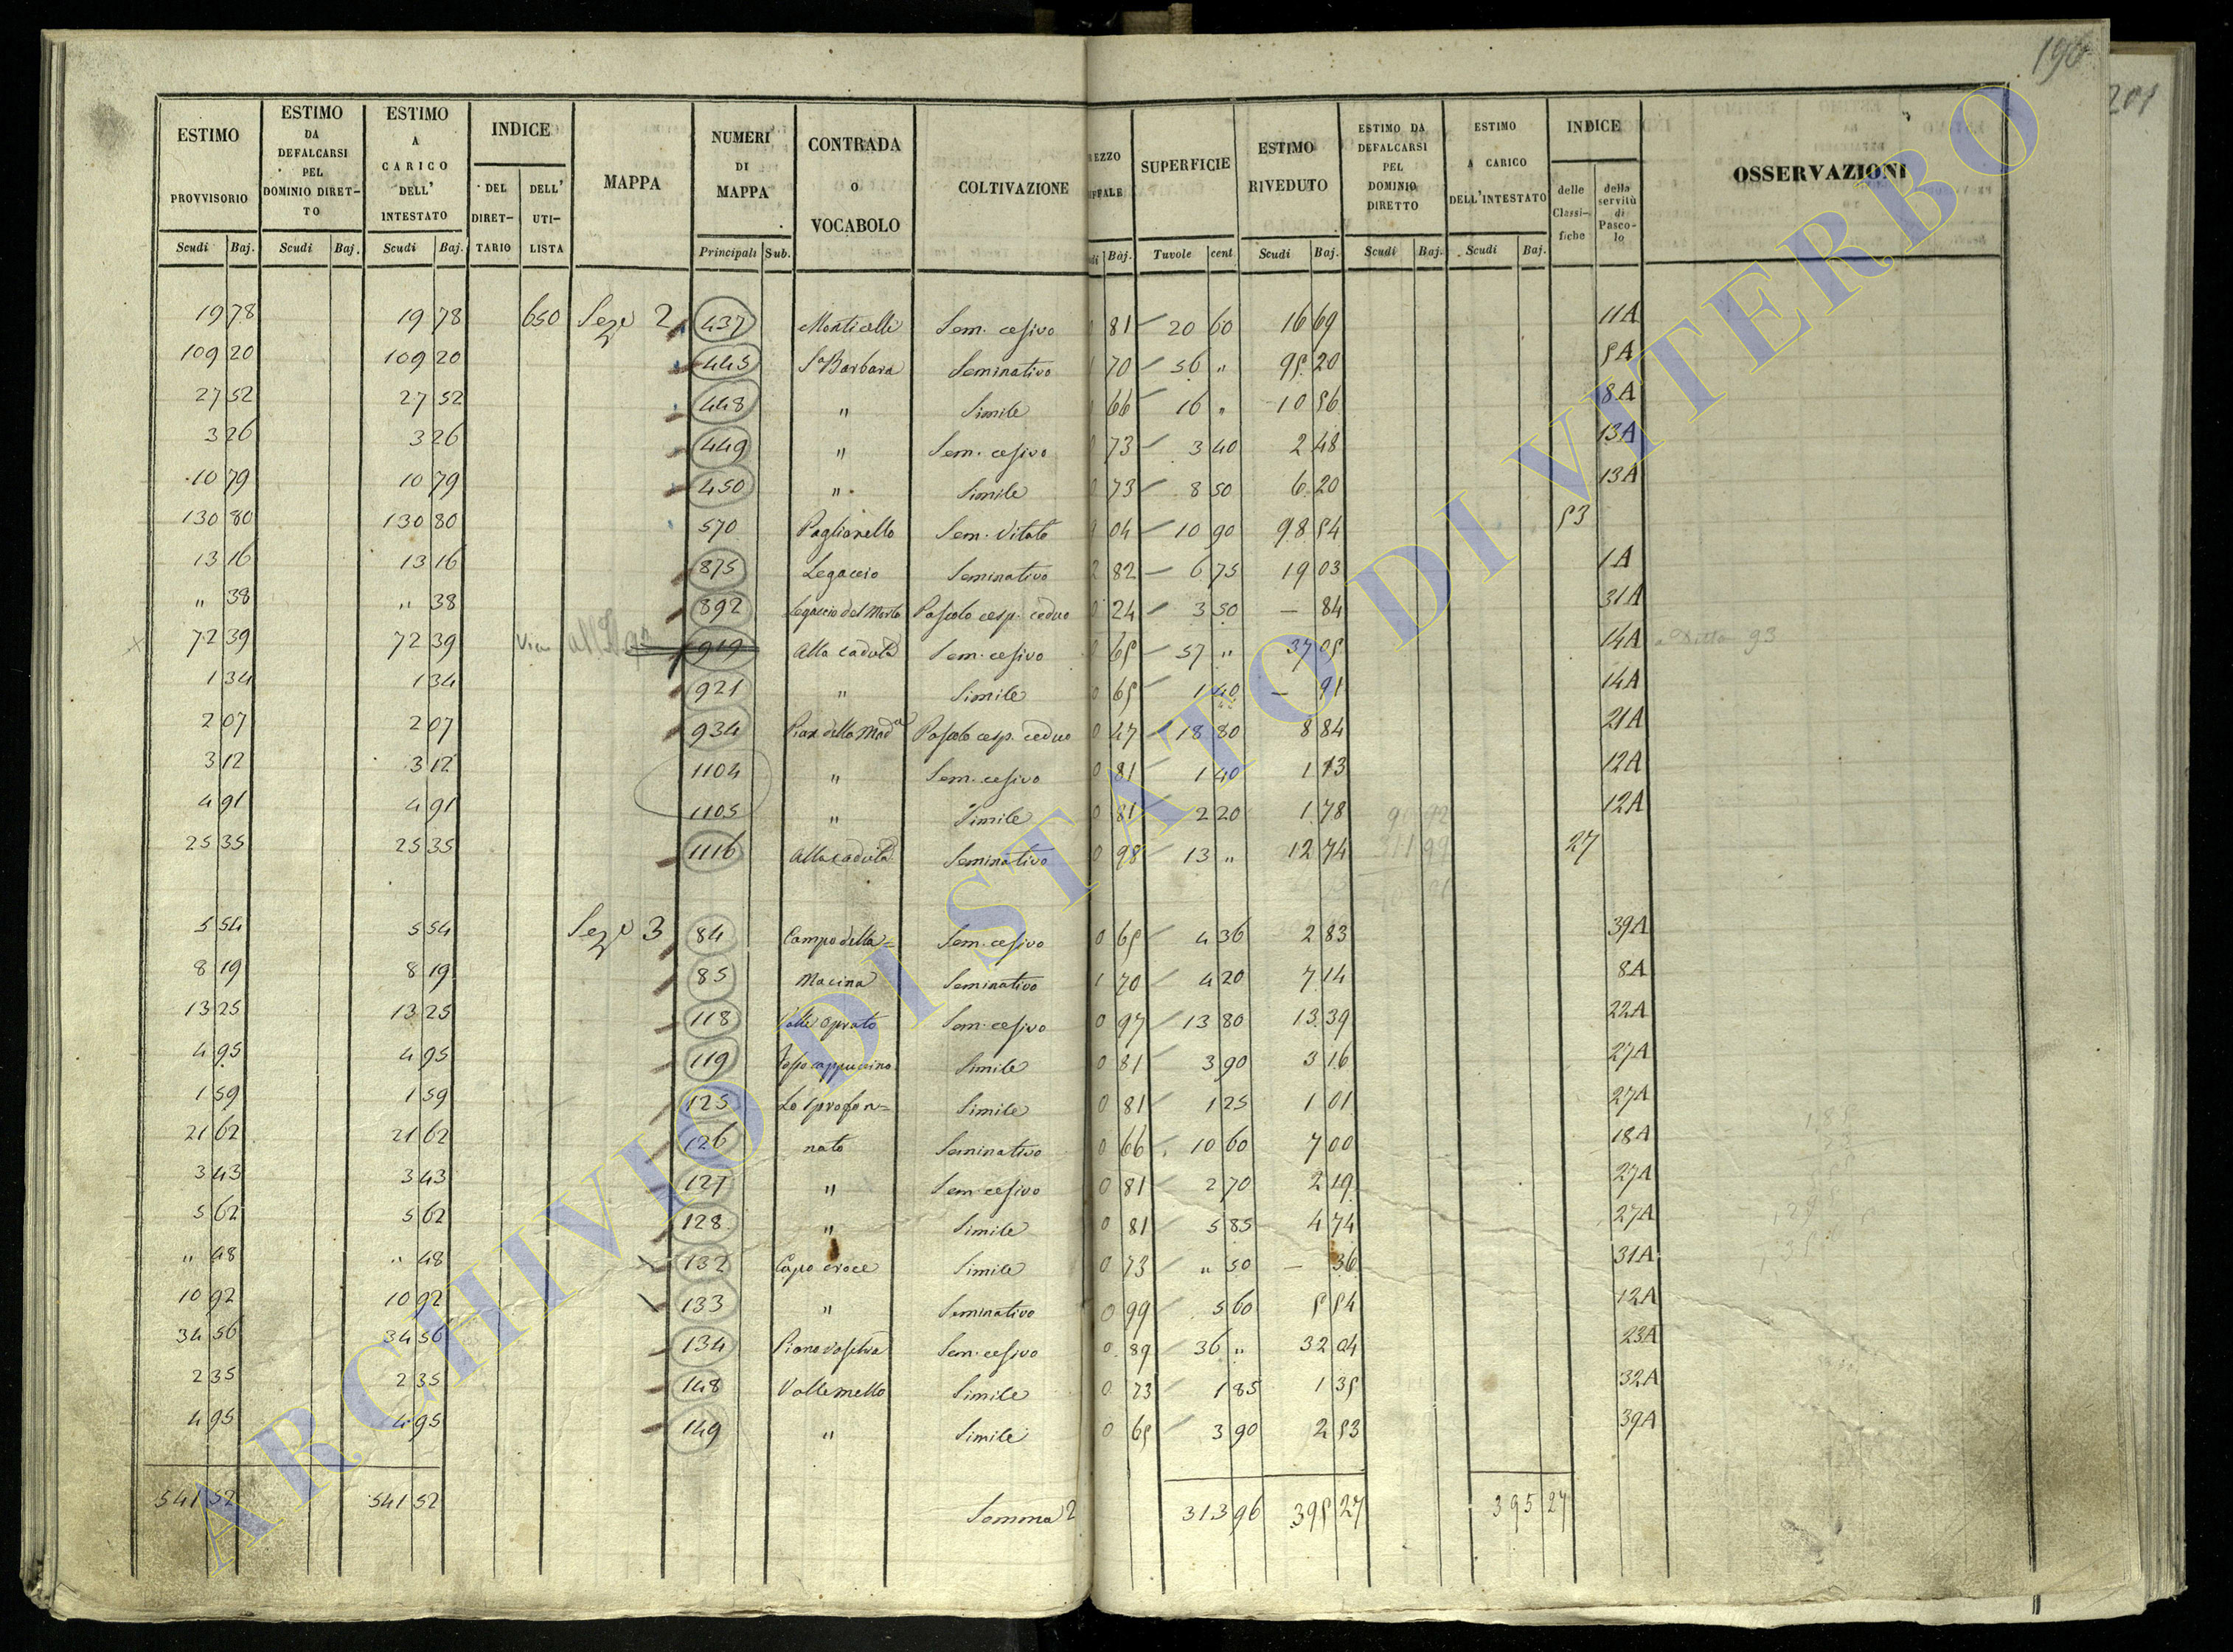 190
201
ESTIMO PROVVISORIO Scudi Baj. | ESTIMO DA DEFALCARSI PEL DOMINIO DIRET-TO Scudi Baj. | ESTIMO A CARICO DELL' INTESTATO Scudi Baj. | INDICE DEL DIRET-TARIO DELL' UTI-LISTA | MAPPA | NUMERI DI MAPPA Principali Sub. | CONTRADA O VOCABOLO | COLTIVAZIONE | EZZO FFALE di Baj. | SUPERFICIE Tuvole cent. | ESTIMO RIVEDUTO Scudi Baj. | ESTIMO DA DEFALCARSI PEL DOMINIO DIRETTO Scudi Baj. | ESTIMO A CARICO DELL'INTESTATO Scudi Baj. | INDICE delle Classi-fiche della servitù di Pasco-lo | OSSERVAZIONI
19 78 19 78 650 Seze 2 437 Monticelli Sem. cesivo 81 20 60 16 69 11A
109 20 109 20 445 Sa Barbara Seminativo 1 70 56 " 95 20 5A
27 52 27 52 448 " Simile 66 16 " 10 56 8A
3 26 3 26 449 " Sem. cesivo 0 73 3 40 2 48 13A
10 79 10 79 450 " Simile 0 73 8 50 6 20 13A
130 80 130 80 570 Paglionello Sem. Vitato 9 04 10 90 98 54 53
13 16 13 16 875 Legaccio Seminativo 2 82 6 75 19 03 1A
" 38 " 38 892 Legaccio del Monte Pascolo cesp. ceduo 0 24 3 50 — 84 31A
72 39 72 39 Via 919 Alla caduta Sem. cesivo 0 65 57 " 37 05 14A a Ditta 93
1 34 1 34 921 " Simile 0 65 1 40 — 91 14A
2 07 2 07 934 Pian della Mada Pascolo cesp. ceduo 0 47 18 80 8 84 21A
3 12 3 12 1104 " Sem. cesivo 0 81 1 40 1 13 12A
4 91 4 91 1105 " Simile 0 81 2 20 1 78 12A
25 35 25 35 1116 Alla caduta Seminativo 0 98 13 " 12 74 27
5 54 5 54 Seze 3 84 Campo della= Sem. cesivo 0 65 4 36 2 83 39A
8 19 8 19 85 Macina Seminativo 1 70 4 20 7 14 8A
13 25 13 25 118 Valle Oprato Sem. cesivo 0 97 13 80 13 39 22A
4 95 4 95 119 Fosso cappuccino Simile 0 81 3 90 3 16 27A
1 59 1 59 125 Lo sprofon= Simile 0 81 1 25 1 01 27A
21 62 21 62 126 nato Seminativo 0 66 10 60 7 00 18A
3 43 3 43 127 " Sem cesivo 0 81 2 70 2 19 27A
5 62 5 62 128 " Simile 0 81 5 85 4 74 27A
" 48 " 48 132 Capo croce Simile 0 73 " 50 — 36 31A
10 92 10 92 133 " Seminativo 0 99 5 60 5 54 12A
34 56 34 56 134 Piano Sem. cesivo 0 89 36 " 32 04 23A
2 35 2 35 148 Vallemello Simile 0 73 1 85 1 35 32A
4 95 4 95 149 " Simile 0 65 3 90 2 53 39A
541 52 541 52 Somma 2 313 96 395 27 395 27
ARCHIVIO DI STATO DI VITERBO